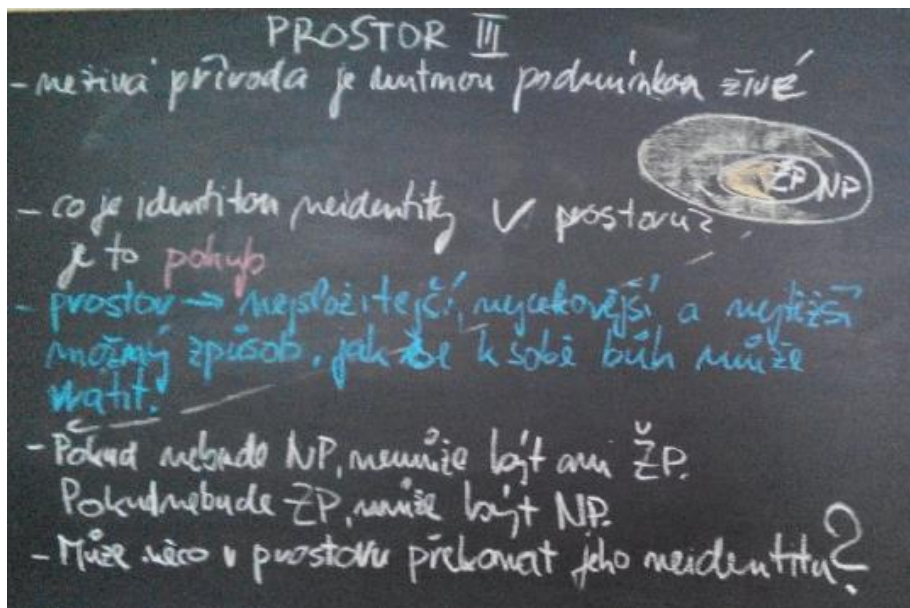 PROSTOR III
- neživá příroda je nutnou podmínkou živé
ŽP NP
- co je identitou neidentity V prostoru?
je to pohyb
- prostor → nejsložitejčí, nejcekovější a nejtěžší
možný způsob, jak se k sobě bůh může
vrátit.
- Pokud nebude NP, nemůže být ani ŽP.
Pokud nebude ŽP, může být NP.
- Může něco v prostoru překonat jeho neidentitu?